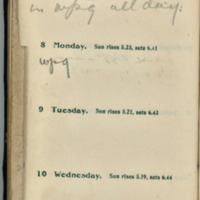 in wpg all day.
8 Monday. Sun rises 5.23, sets 6.41
wpg
9 Tuesday. Sun rises 5.21, sets 6.42
10 Wednesday. Sun rises 5.19, sets 6.44